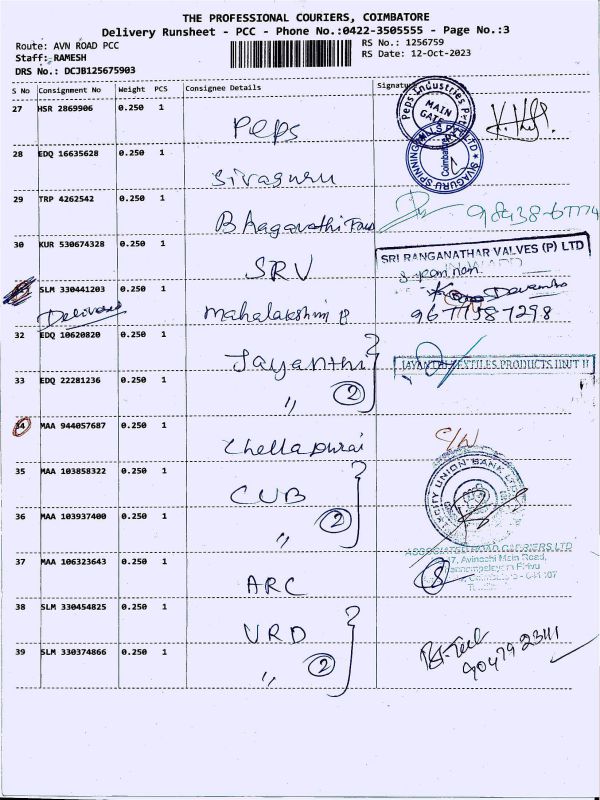 THE PROFESSIONAL COURIERS, COIMBATORE
Delivery Runsheet - PCC - Phone No.:0422-3505555 - Page No.:3
Route: AVN ROAD PCC
RS No.: 1256759
Staff: RAMESH
RS Date: 12-Oct-2023
DRS No.: DCJB125675903
S No Consignment No Weight PCS Consignee Details Signature
27 HSR 2869906 0.250 1
Peps
Peps Industries Pvt
MAIN GATE
28 EDQ 16635628 0.250 1
Sivaguru
SIVAGURU SPINNING
Coimbatore
29 TRP 4262542 0.250 1
30 KUR 530674328 0.250 1
SRV
SRI RANGANATHAR VALVES (P) LTD
SLM 330441203 0.250 1
Delivered
Mahalakshmi
32 EDQ 10620820 0.250 1
Jayanthi
JAYANTHI TEXTILES PRODUCTS UNIT II
33 EDQ 22281236 0.250 1
" 2
34 MAA 944057687 0.250 1
Chellapurai
35 MAA 103858322 0.250 1
CUB
CITY UNION BANK LTD
36 MAA 103937400 0.250 1
" 2
ASSOCIATED ROAD CARRIERS LTD
37 MAA 106323643 0.250 1
ARC
Avinashi Main Road,
38 SLM 330454825 0.250 1
VRD
39 SLM 330374866 0.250 1
" 2